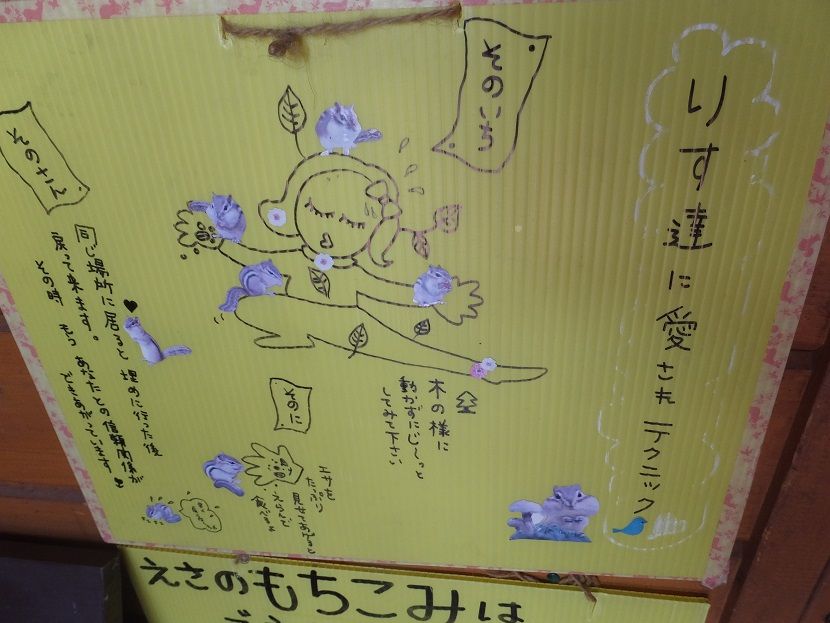 りす達に愛されテクニック
そのいち
木の様に
動かずにじ〜っと
してみて下さい
そのに
エサを
たっぷり
見せてあげると
えらんで
食べるよ
そのさん
同じ場所に居ると埋めに行った後
戻って来ます。
その時、もう あなたとの信頼関係が
できあがっています
えさのもちこみは